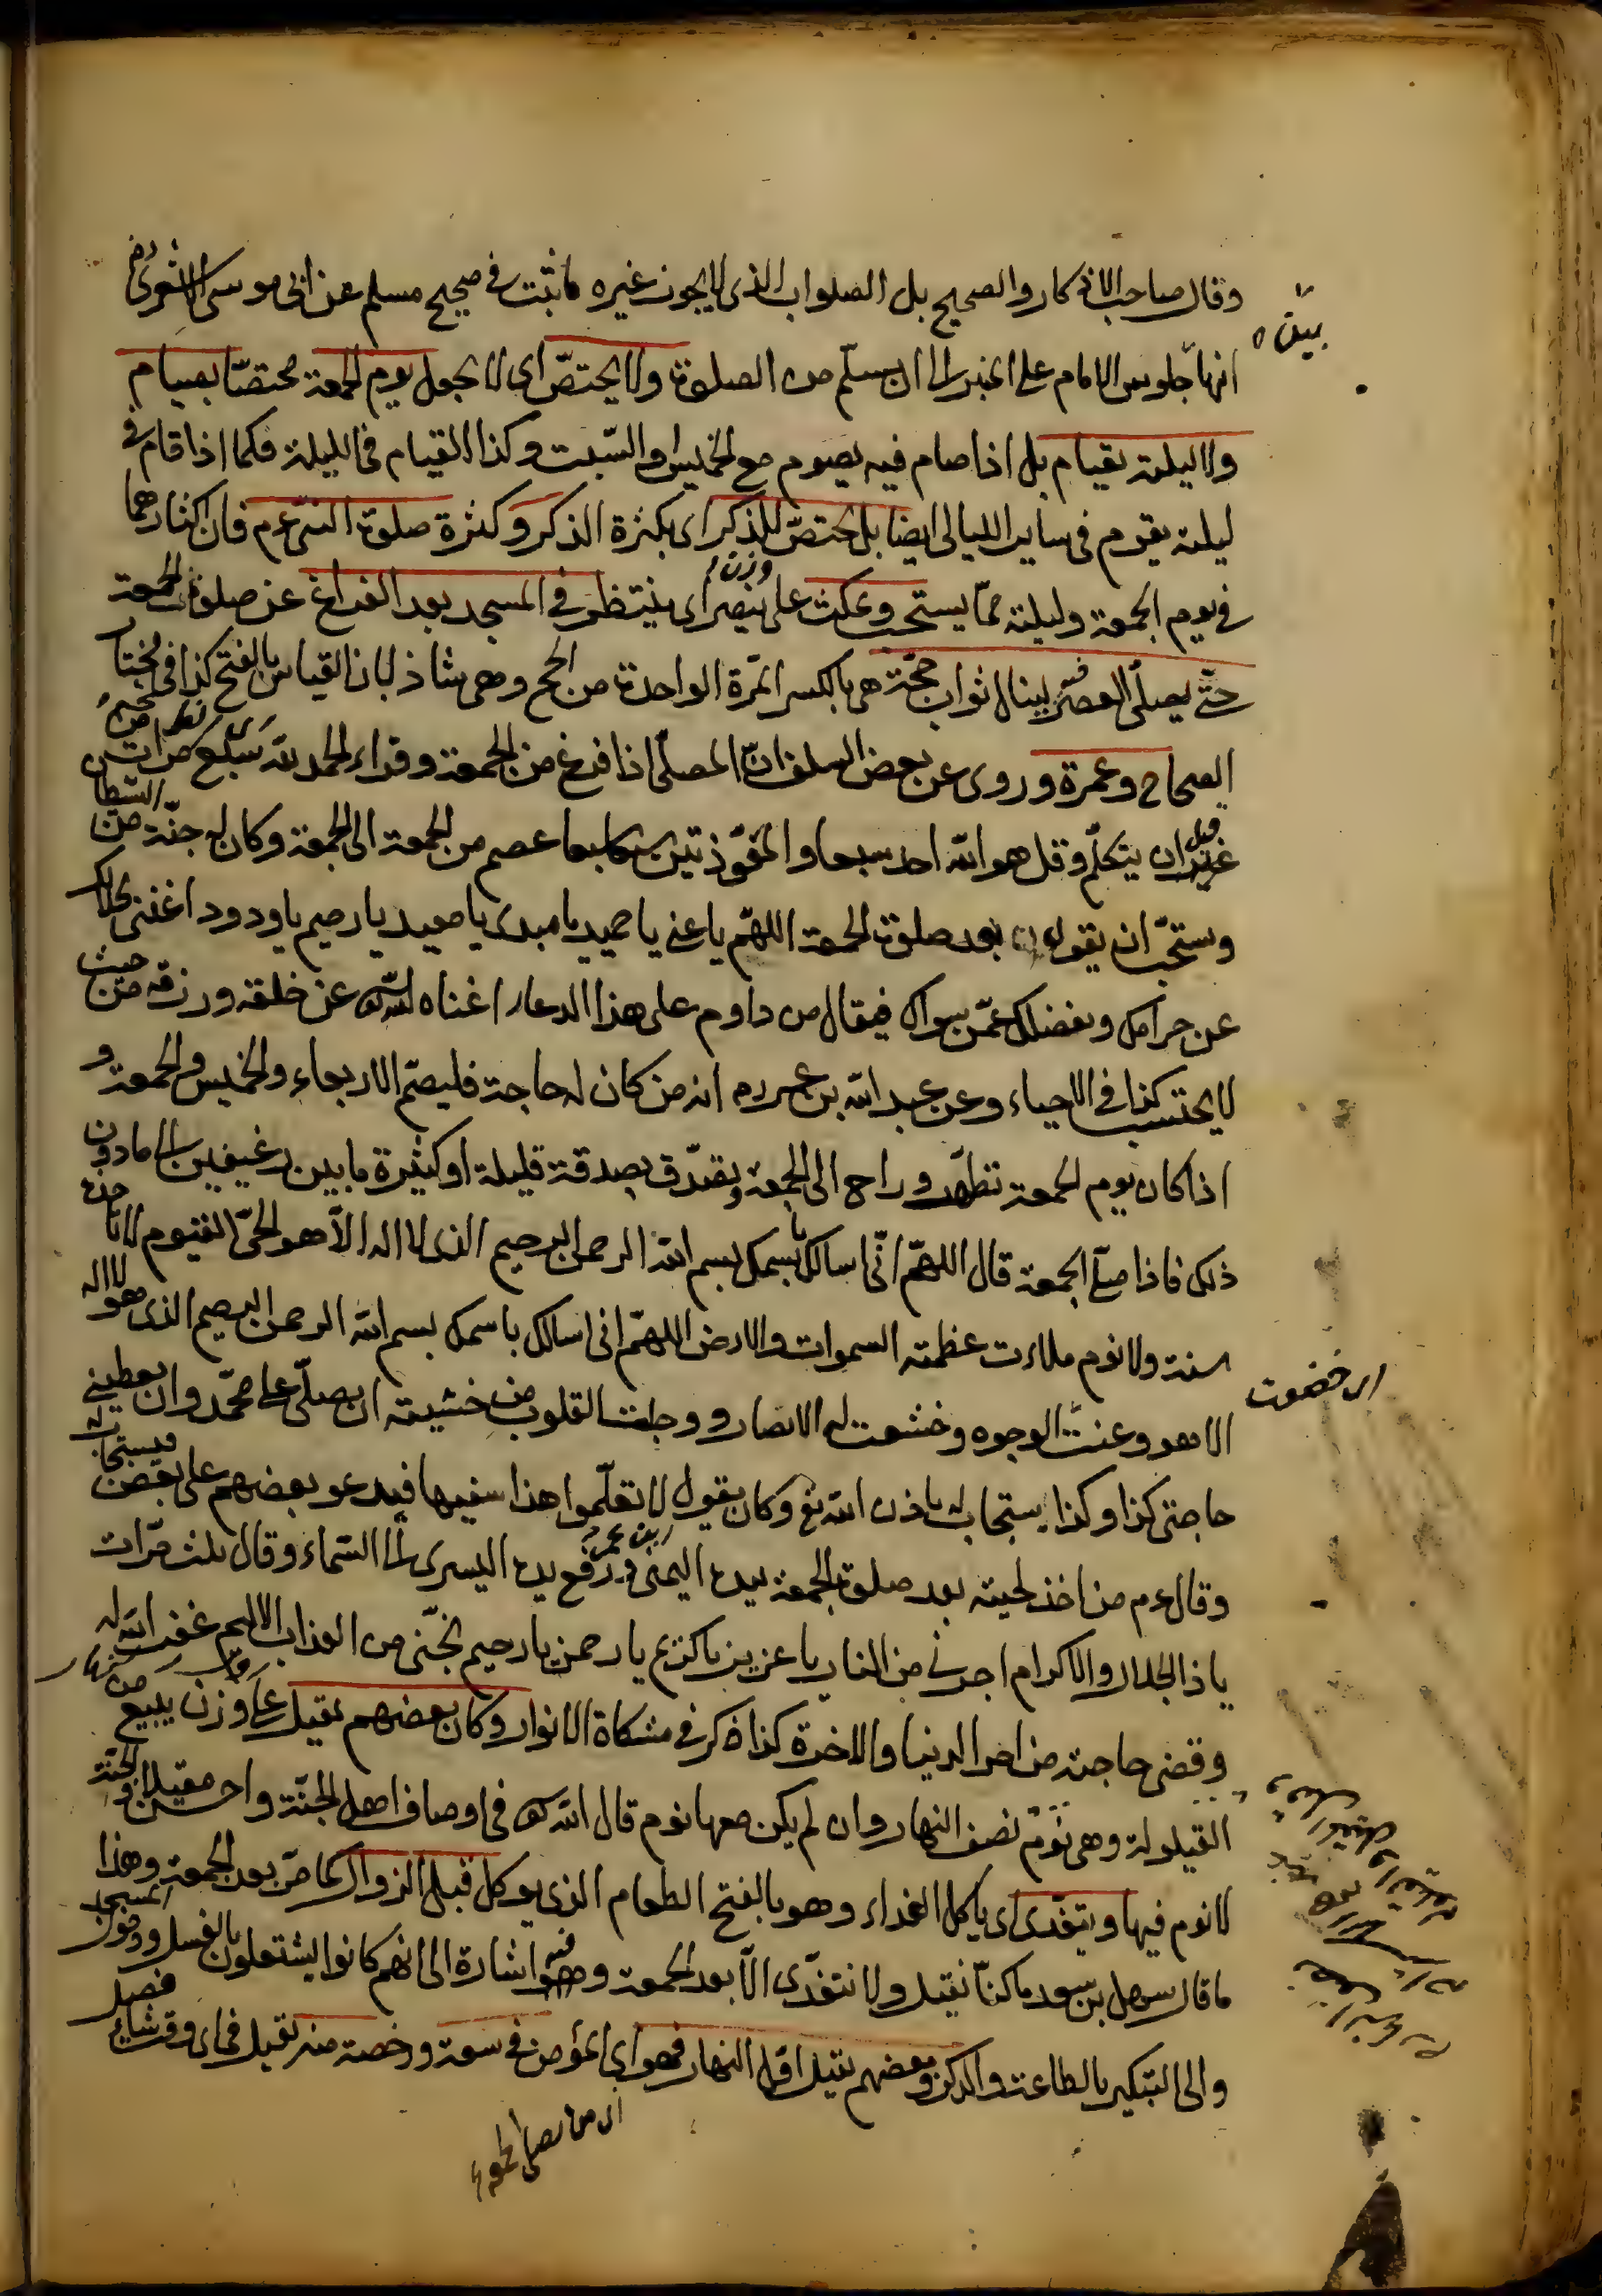 وقال صاحب الاذكار والصحيح بل الصلواب الذى لا يجوز غيره ما ثبت فى صحيح مسلم عن ابى موسى الاشعرى رض
انها جلوس الامام على المنبر الى ان يسلّم من الصلوة ولا يختصّ اى لا يجعل يوم الجمعة مختصّا بصيام
ولا ليلته بقيام بل اذا صام فيه يصوم مع الخميس او السّبت وكذا القيام فى الليلة فكما اذا قام فى
ليلته يقوم فى ساير الليالى ايضا بل يختصّ للذكر اى بكثرة الذكر وكثرة صلوة النبى عم فان اكثارهما
فى يوم الجمعة وليلته ممّا يستحب ويمكث على ينصر اى ينتظر فى المسجد بعد الفراغ عن صلوة الجمعة
حتّى يصلّى العصر لينال ثواب حجّة هى بالكسر المرّة الواحدة من الحج وهى شاذ لان القياس بالفتح كذا فى مختار
الصحاح وعمرة وروى عن بعض السلف انّ المصلّى اذا فرغ من الجمعة وقراء الحمد لله سبع مرات من
غير ان يتكلّم وقل هو الله احد سبعا والمعوّذتين سبعا عصم من الجمعة الى الجمعة وكان له جنّة من الشيطان
ويستحبّ ان يقول بعد صلوة الجمعة اللهمّ يا غنى يا حميد يا مبدى يا معيد يا رحيم يا ودود اغننى بحلالك
عن حرامك وبفضلك عمّن سواك فيقال من داوم على هذا الدعاء اغناه الله عن خلقه ورزقه من حيث
لا يحتسب كذا فى الاحياء وعن عبد الله بن عمر رض انه من كان له حاجة فليصم الاربعاء والخميس والجمعة و
اذا كان يوم الجمعة تطهّر وراح الى الجمعة وتصدّق بصدقة قليلة او كثيرة ما بين رغيفين الى ما دون
ذلك فاذا صلّى الجمعة قال اللهمّ انّى اسالك باسمك بسم الله الرحمن الرحيم الذى لا اله الّا هو الحىّ القيوم لا تاخذه
سنة ولا نوم ملاءت عظمته السموات والارض اللهمّ انى اسالك باسمك بسم الله الرحمن الرحيم الذى لا اله
الا هو وعنت الوجوه وخشعت له الابصار ووجلت القلوب من خشيته ان يصلّى على محمّد وان يعطينى
حاجتى كذا وكذا يستجاب له باذن الله تع وكان يقول لا تعلّموا هذا سفيها فيدعو بعضهم على بعض فيستجاب له
وقال عم من اخذ لحيته بعد صلوة الجمعة بيده اليمنى ورفع يده اليسرى الى السّماء وقال ثلث مرّات
يا ذا الجلال والاكرام اجرنى من النار يا عزيز يا كريم يا رحمن يا رحيم نجّنى من العذاب الاليم غفر الله له
وقضى حاجته من امر الدنيا والاخرة كذا ذكر فى مشكاة الانوار وكان بعضهم يقيل على وزن يبيع من
القيلولة وهى نوم نصف النهار وان لم يكن معها نوم قال الله تع فى اوصاف اهل الجنّة واحسن مقيلا والجنّة
لا نوم فيها ويتغدّى اى ياكل الغداء وهو بالفتح الطعام الذى يوكل قبل الزوال كما مرّ بعد الجمعة وهذا
ما قال سهل بن سعد ما كنّا نقيل ولا نتغدّى الّا بعد الجمعة وفيه اشارة الى انهم كانوا يشتغلون بالغسل ودخول المسجد
والى التبكير بالطاعة والذكر وبعضهم يقيل اوّل النهار فهو اى المؤمن فى سعة ورخصة منه يقيل فى اى وقت شاء فصل
اى خضعت